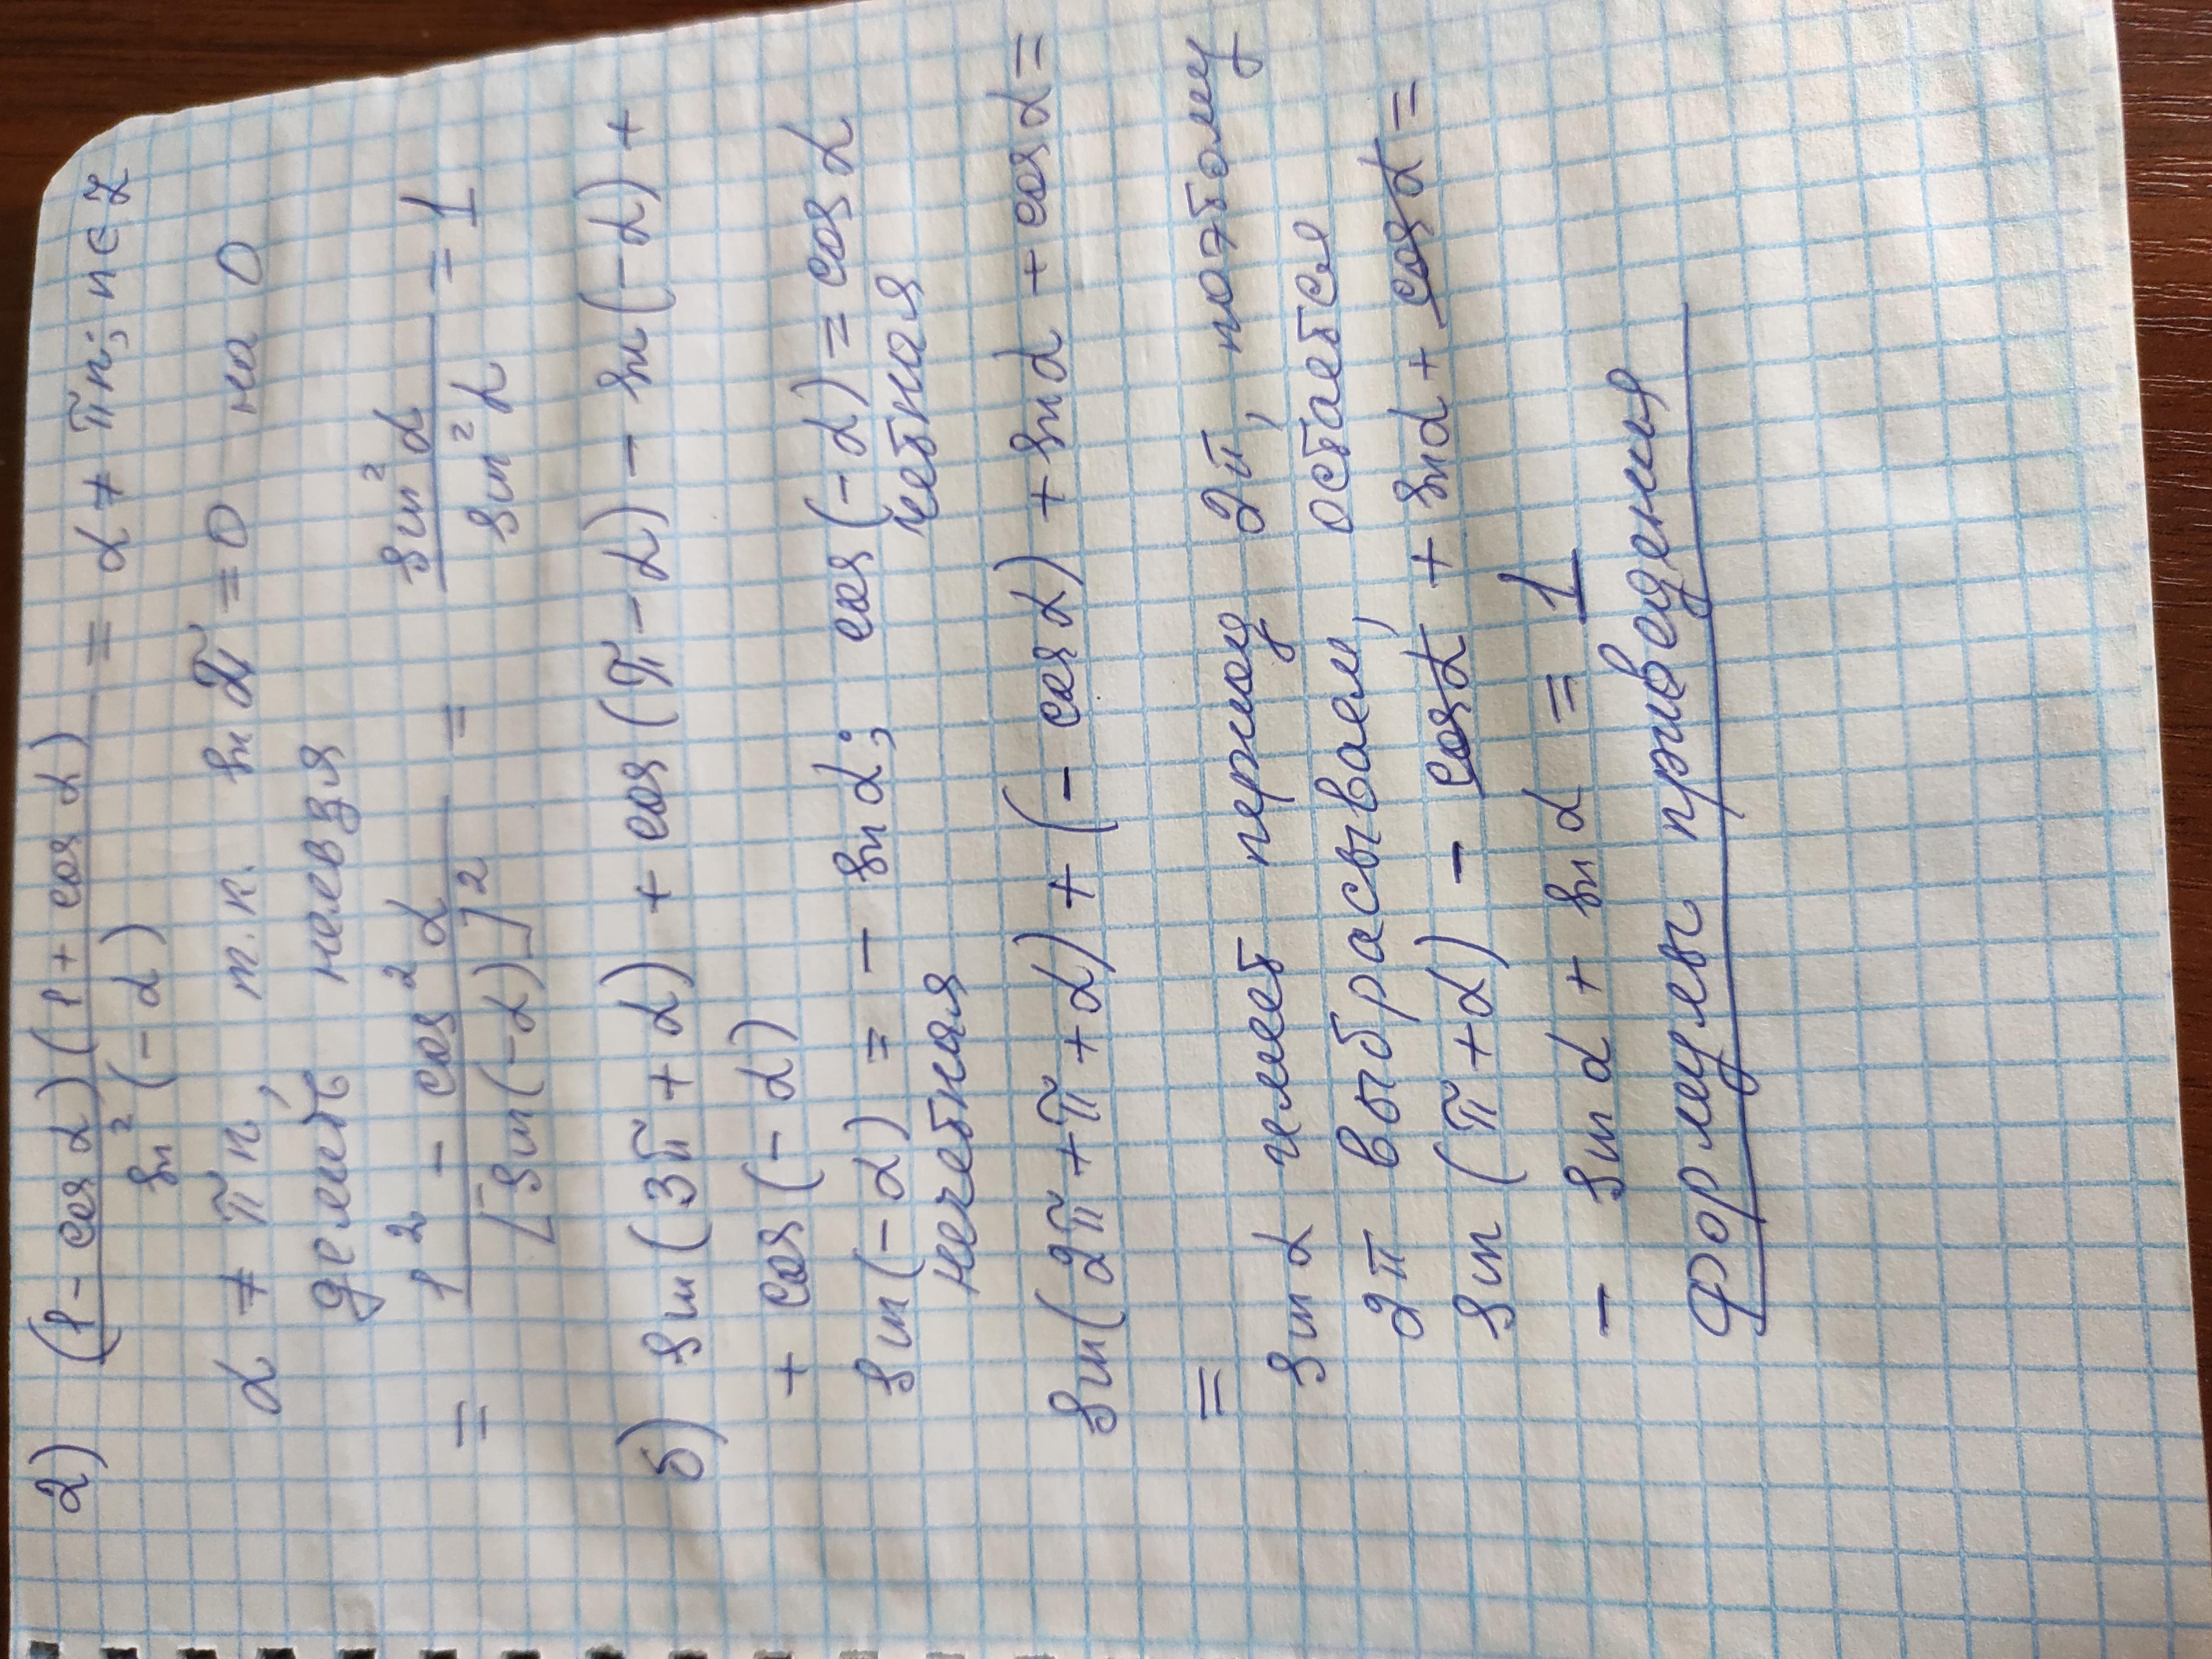 2) (1 - cos α)(1 + cos α) / sin²(-α) = α ≠ πn; n ∈ Z
α ≠ πn, т.к. sin π = 0 на 0
делить нельзя
= 1² - cos²α / [sin(-α)]² = sin²α / sin²α = 1
б) sin(3π + α) + cos(π - α) - sin(-α) +
+ cos(-α)
sin(-α) = - sin α; cos(-α) = cos α
нечетная четная
sin(2π + π + α) + (- cos α) + sin α + cos α =
=
sin α имеет период 2π, поэтому
2π выбрасываем, остается
sin(π + α) - cos α + sin α + cos α =
- sin α + sin α = 1
Формулы приведения